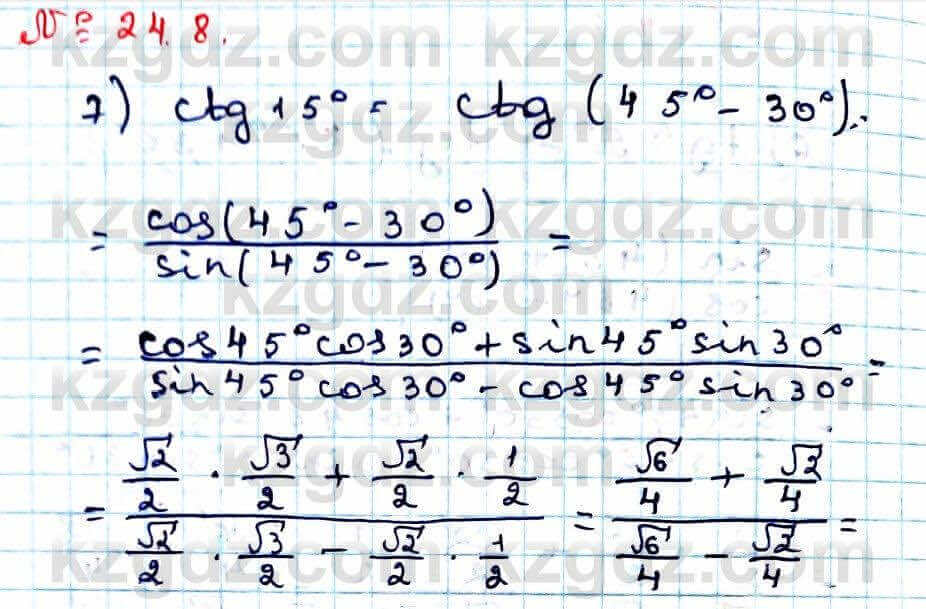 № 24.8.
7) ctg 15° = ctg (45° - 30°) =
= cos(45° - 30°) / sin(45° - 30°) =
= cos45° cos30° + sin45° sin30° / sin45° cos30° - cos45° sin30° =
= √2/2 · √3/2 + √2/2 · 1/2 / √2/2 · √3/2 - √2/2 · 1/2 = √6/4 + √2/4 / √6/4 - √2/4 =
kzgdz.com